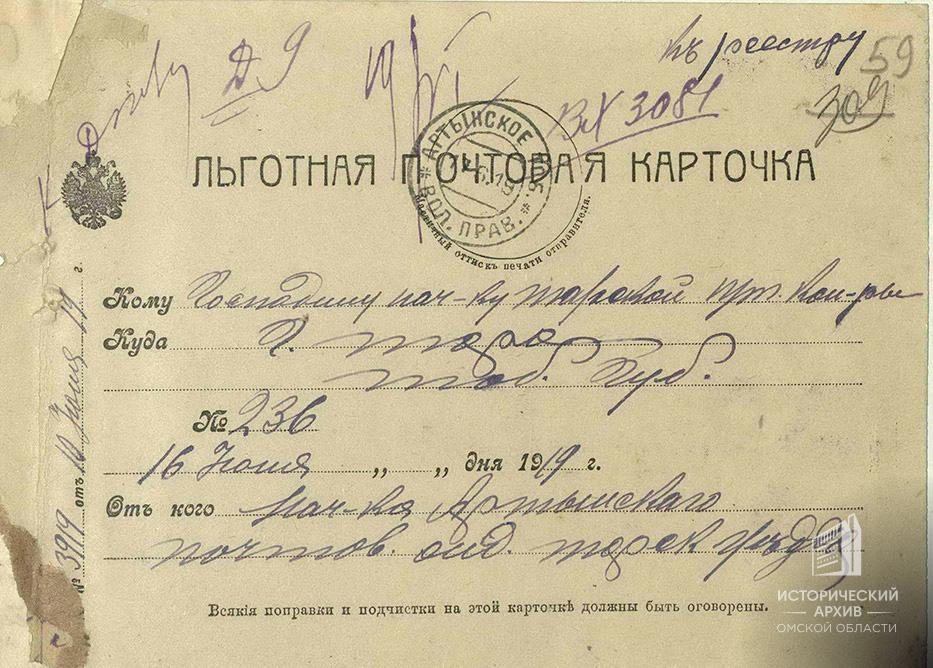 Къ реестру
59
Д 9
Вх 3081
309
ЛЬГОТНАЯ ПОЧТОВАЯ КАРТОЧКА
АРТЫНСКОЕ
ВОЛ. ПРАВ.
Мастичный оттискъ печати отправителя.
Кому Господину нач-ку Тарской п.т. кон-ры
Куда г. Тара
Тоб. Губ.
№ 236
16 Июня „ „ дня 1919 г.
Отъ кого Нач-ка Артынскаго
почтов. отд. Тарск уѣзда
Всякія поправки и подчистки на этой карточкѣ должны быть оговорены.
№ 3919 отъ Июня 19 г.
ИСТОРИЧЕСКИЙ
АРХИВ
ОМСКОЙ ОБЛАСТИ